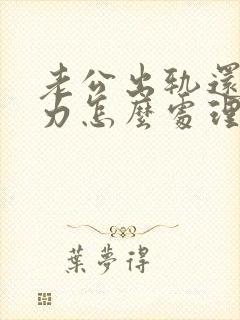 老公出轨還
力怎麼處理
葉夢得